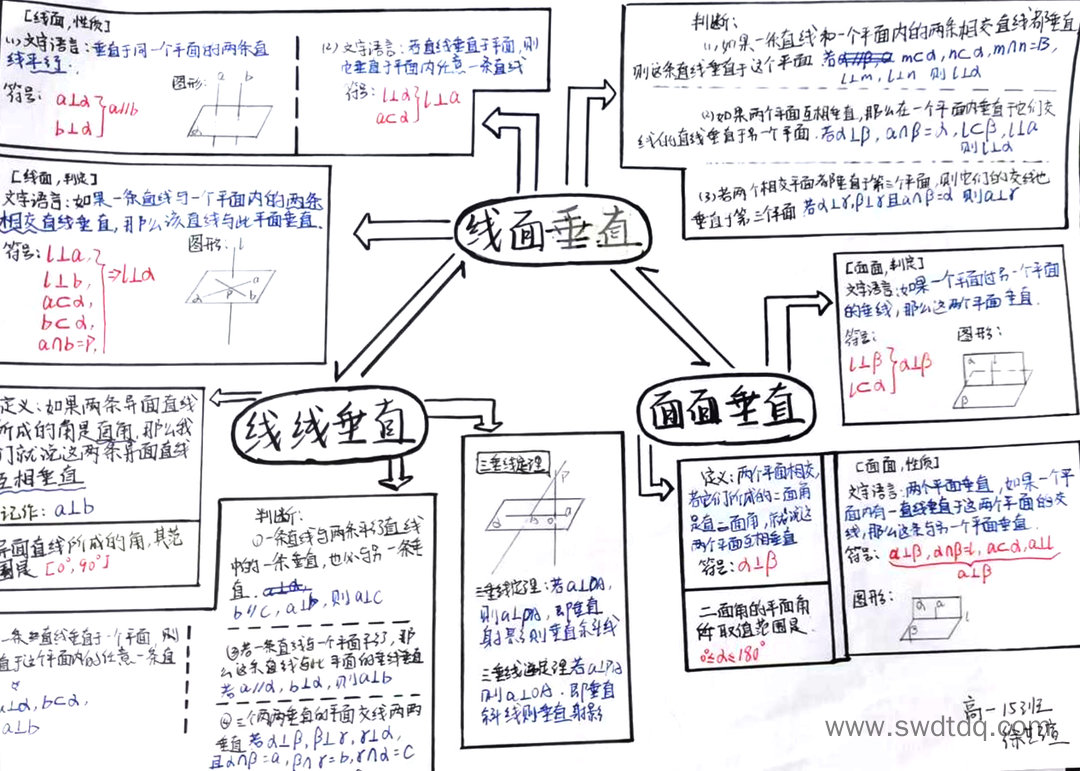 [线面,性质]
(1)文字语言:垂直于同一个平面的两条直
线平行.
符号: a⊥α
b⊥α } a//b
图形:
a b
(2)文字语言:若直线垂直于平面,则
也垂直于平面内任意一条直线
符号: l⊥α
a⊂α } l⊥a
判断:
(1)如果一条直线和一个平面内的两条相交直线都垂直
则这条直线垂直于这个平面. 若 m⊂α, n⊂α, m∩n=B,
l⊥m, l⊥n 则l⊥α
(2)如果两个平面互相垂直,那么在一个平面内垂直于它们交
线的直线垂直于另一个平面.若α⊥β, α∩β=a, l⊂β, l⊥a
则l⊥α
(3)若两个相交平面都垂直于第三个平面,则它们的交线也
垂直于第三个平面 若α⊥γ,β⊥γ且α∩β=a 则a⊥γ
[线面,判定]
文字语言:如果一条直线与一个平面内的两条
相交直线垂直,那么该直线与此平面垂直.
符号: l⊥a,
l⊥b,
a⊂α,
b⊂α,
a∩b=P,
⇒l⊥α
图形:
l
α P a b
线面垂直
[面面,判定]
文字语言:如果一个平面过另一个平面
的垂线,那么这两个平面垂直.
符号:
l⊥β
l⊂α } α⊥β
图形:
α l
β
线线垂直
面面垂直
定义:如果两条异面直线
所成的角是直角,那么我
们就说这两条异面直线
互相垂直
记作: a⊥b
异面直线所成的角,其范
围是 [0°,90°]
一条直线垂直于一个平面,则
直于这个平面内的任意一条直
a⊥α, b⊂α,
a⊥b
判断:
①一条直线与两条平行直线
中的一条垂直,也必与另一条垂
直.
b//c, a⊥b,则a⊥c
③若一条直线与一个平面平行,那
么这条直线与此平面的垂线垂直
若a//α, b⊥α,则a⊥b
④三个两两垂直的平面交线两两
垂直 若α⊥β,β⊥γ,γ⊥α,
且α∩β=a,β∩γ=b,γ∩α=C
三垂线定理
P
O a
α
三垂线定理:若a⊥OA,
则a⊥PA,即垂直
射影则垂直斜线
三垂线逆定理 若a⊥PA
则a⊥OA.即垂直
斜线则垂直射影
定义:两个平面相交,
若它们所成的二面角
是直二面角,就说这
两个平面互相垂直
符号: α⊥β
二面角的平面角
所取值范围是.
0°≤α≤180°
[面面,性质]
文字语言:两个平面垂直,如果一个平
面内有一直线垂直于这两个平面的交
线,那么这条与另一个平面垂直.
符号: α⊥β, α∩β=l, a⊂α, a⊥l
a⊥β
图形:
α a
β l
高一15班
www.swdtdq.com